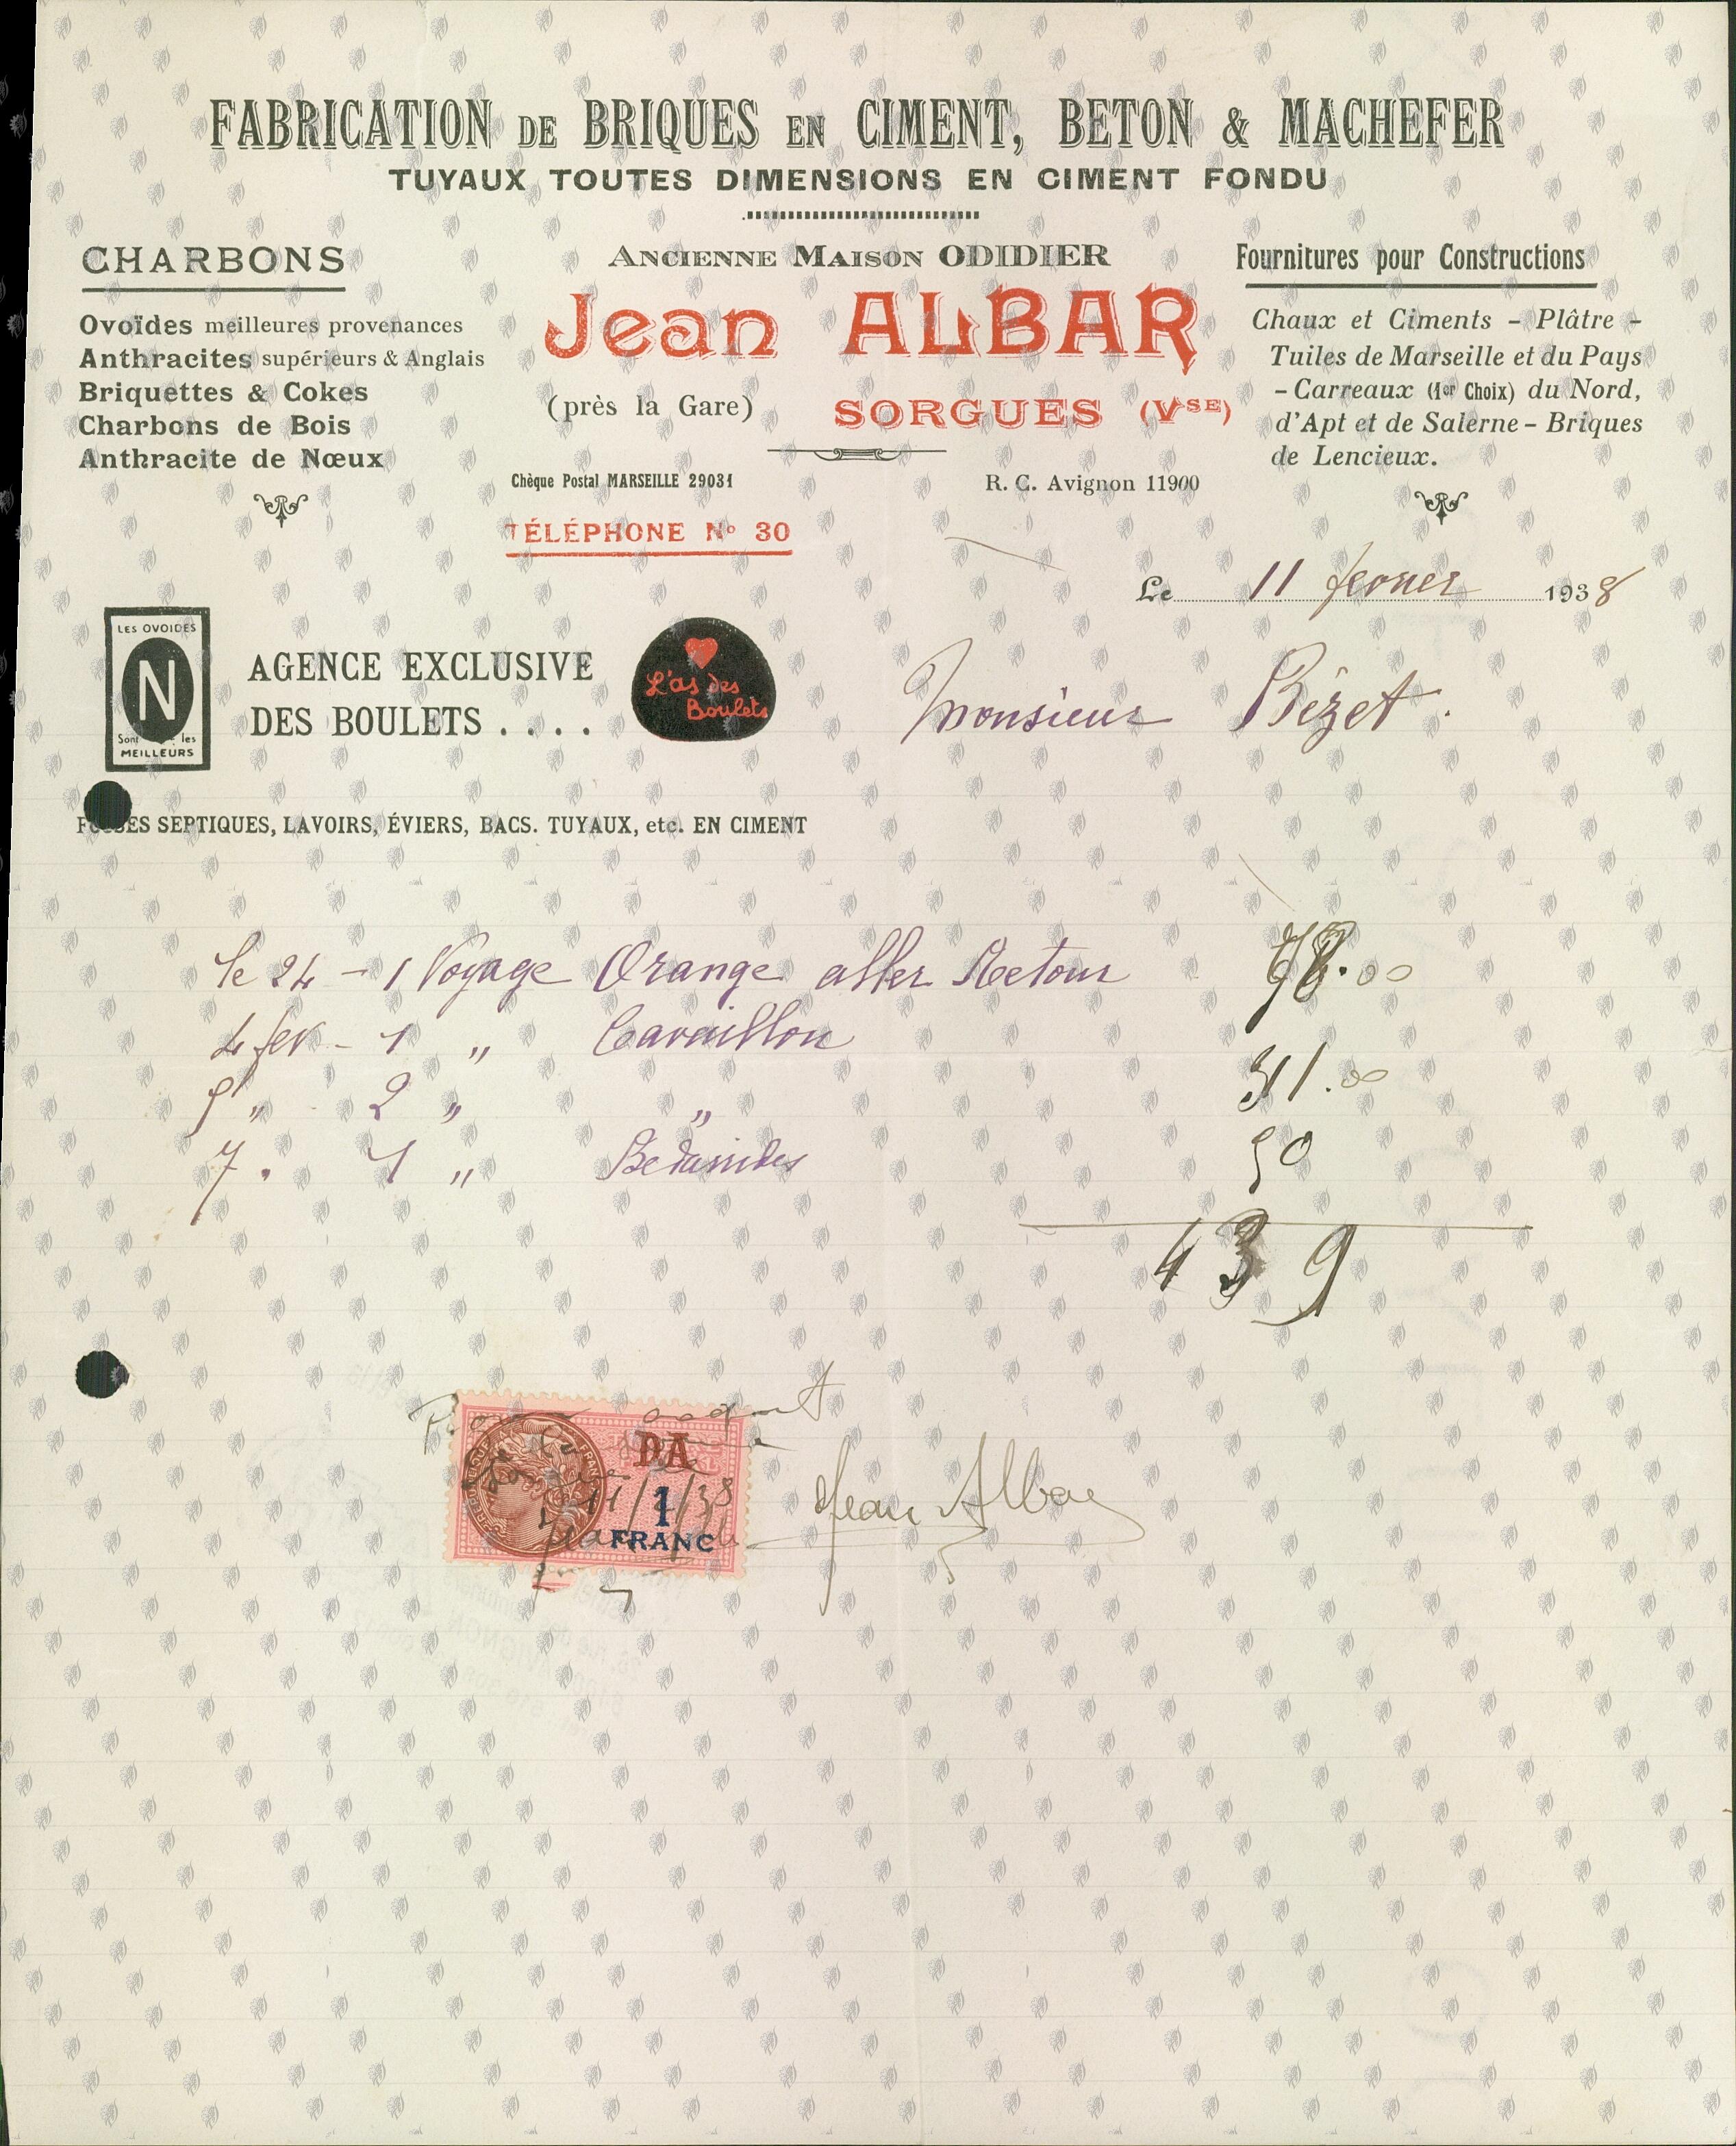 FABRICATION DE BRIQUES EN CIMENT, BETON & MACHEFER
TUYAUX TOUTES DIMENSIONS EN CIMENT FONDU
CHARBONS
Ovoïdes meilleures provenances
Anthracites supérieurs & Anglais
Briquettes & Cokes
Charbons de Bois
Anthracite de Nœux
ANCIENNE MAISON ODIDIER
Jean ALBAR
(près la Gare) SORGUES (VSE)
Chèque Postal MARSEILLE 29031 R. C. Avignon 11900
TÉLÉPHONE No 30
Fournitures pour Constructions
Chaux et Ciments - Plâtre -
Tuiles de Marseille et du Pays
- Carreaux (1er Choix) du Nord,
d'Apt et de Salerne - Briques
de Lencieux.
Le 11 fevrier 1938
LES OVOIDES
N
Sont les
MEILLEURS
AGENCE EXCLUSIVE
DES BOULETS . . . .
L'as des
Boulets
Monsieur Bézet.
FOSSES SEPTIQUES, LAVOIRS, ÉVIERS, BACS. TUYAUX, etc. EN CIMENT
le 24 - 1 Voyage Orange aller Retour 00
4 fev - 1 " Cavaillon
5 " 2 " " 311.00
7 . 1 " Bedarrides 50
439
Pour acquit
DA
1
FRANC
Jean Albar